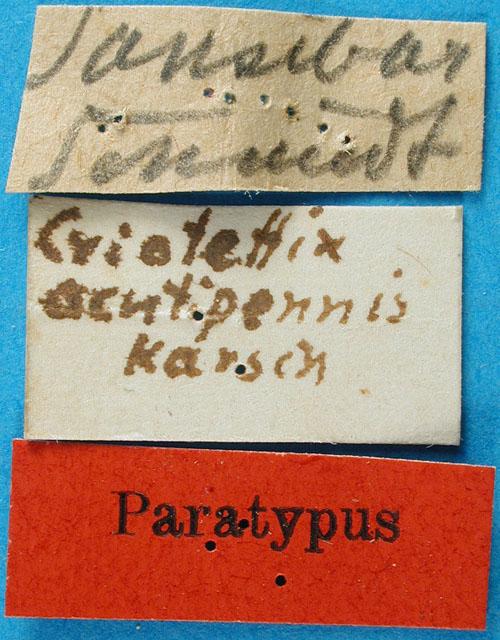 Sansibar
Schmidt
Criotettix
acutipennis
Karsch
Paratypus